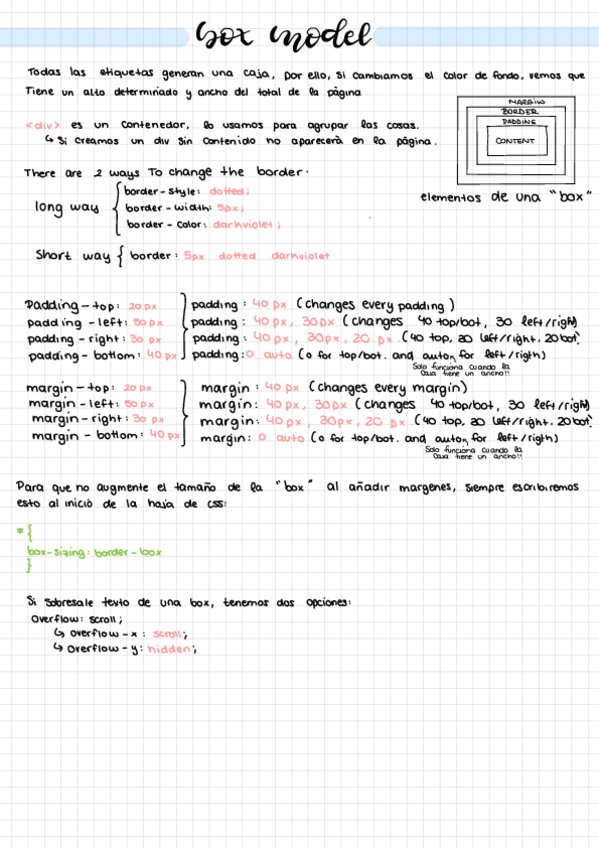 box model
Todas las etiquetas generan una caja, por ello, si cambiamos el color de fondo, vemos que
Tiene un alto determinado y ancho del total de la pàgina
<div> es un contenedor, lo usamos para agrupar las cosas.
↳ Si creamos un div sin contenido no aparecerà en la pàgina.
MARGING
BORDER
PADDING
CONTENT
elementos de una "box"
There are 2 ways To change the border.
long way
border-style: dotted;
border-width: 5px;
border-color: darkviolet;
Short way { border: 5px dotted darkviolet
Padding-top: 20 px
padding-left: 50 px
padding-right: 30 px
padding-bottom: 40 px
padding: 40 px (changes every padding)
padding: 40 px, 30px (changes 40 top/bot, 30 left/right)
padding: 40 px, 30px, 20 px. (40 top, 20 left/right. 20 bot.
padding: 0 auto (0 for top/bot. and auto, for left/rigth)
Solo funciona cuando la
caja tiene un ancho!!
margin-top: 20 px
margin-left: 50 px
margin-right: 30 px
margin-bottom: 40 px
margin: 40 px (changes every margin)
margin: 40 px, 30px (changes 40 top/bot, 30 left/right)
margin: 40 px, 30px, 20 px. (40 top, 20 left/right. 20 bot.
margin: 0 auto (0 for top/bot. and auto, for left/rigth)
Solo funciona cuando la
caja tiene un ancho!!
Para que no augmente el tamaño de la "box" al añadir margenes, siempre escribiremos
esto al inicio de la hoja de css:
*{
box-sizing: border-box
}
Si sobresale texto de una box, tenemos dos opciones:
overflow: scroll;
↳ overflow-x: scroll;
↳ overflow-y: hidden;